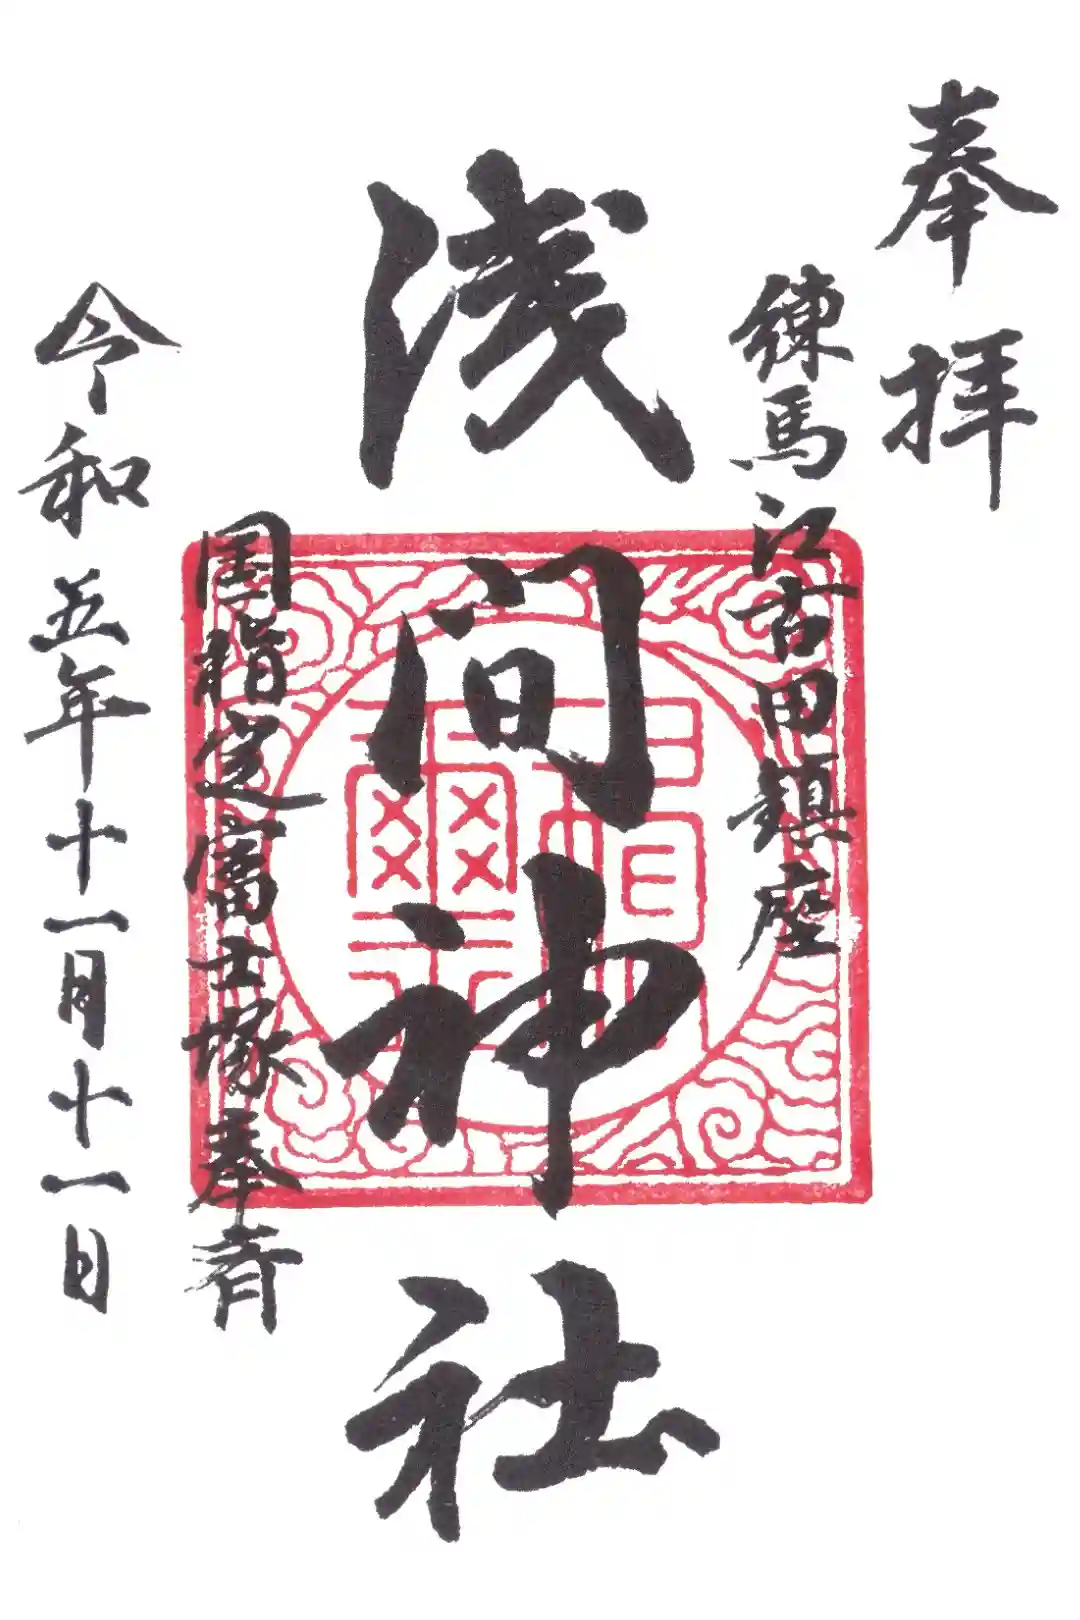 奉拝
練馬江古田鎮座
浅间神社
国指定富士塚奉斉
令和五年十一月十一日